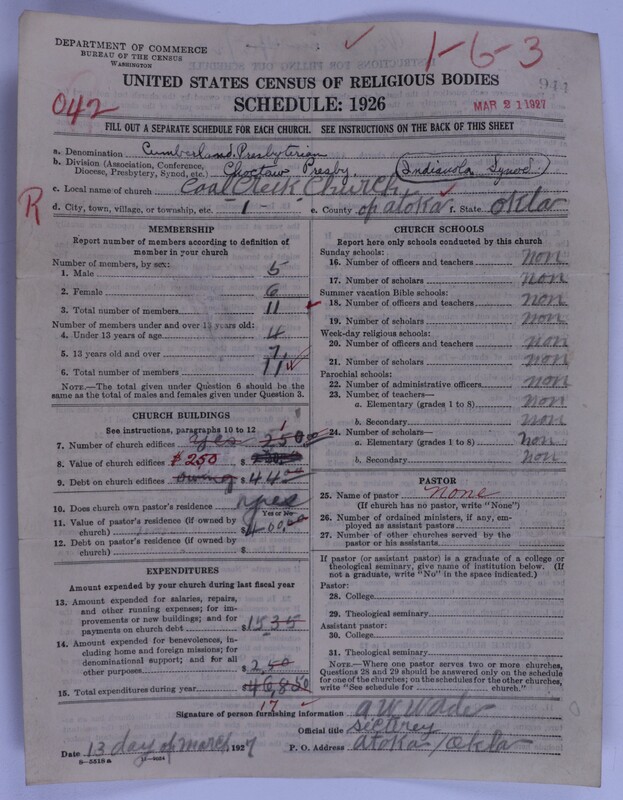 DEPARTMENT OF COMMERCE
BUREAU OF THE CENSUS
WASHINGTON
1-6-3
UNITED STATES CENSUS OF RELIGIOUS BODIES
SCHEDULE: 1926
042
MAR 21 1927
FILL OUT A SEPARATE SCHEDULE FOR EACH CHURCH. SEE INSTRUCTIONS ON THE BACK OF THIS SHEET
a. Denomination Cumberland Presbyterian
b. Division (Association, Conference, Diocese, Presbytery, Synod, etc.) Choctaw Presby. (Indianola Synod)
c. Local name of church Coal Creek Church
R
d. City, town, village, or township, etc. -1- e. County of atoka f. State okla
MEMBERSHIP
Report number of members according to definition of
member in your church
Number of members, by sex:
1. Male 5
2. Female 6
3. Total number of members 11
Number of members under and over 13 years old:
4. Under 13 years of age 4
5. 13 years old and over 7
6. Total number of members 11
NOTE.—The total given under Question 6 should be the
same as the total of males and females given under Question 3.
CHURCH BUILDINGS
See instructions, paragraphs 10 to 12
7. Number of church edifices yes 250.00 1
8. Value of church edifices $250 $
9. Debt on church edifices owing $44.00
10. Does church own pastor's residence yes
Yes or No
11. Value of pastor's residence (if owned by
church) $400.00
12. Debt on pastor's residence (if owned by
church) $
EXPENDITURES
Amount expended by your church during last fiscal year
13. Amount expended for salaries, repairs,
and other running expenses; for im-
provements or new buildings; and for
payments on church debt $1535
14. Amount expended for benevolences, in-
cluding home and foreign missions; for
denominational support; and for all
other purposes $2.50
15. Total expenditures during year $46,850
17
CHURCH SCHOOLS
Report here only schools conducted by this church
Sunday schools:
16. Number of officers and teachers non
17. Number of scholars non
Summer vacation Bible schools:
18. Number of officers and teachers non
19. Number of scholars non
Week-day religious schools:
20. Number of officers and teachers non
21. Number of scholars non
Parochial schools:
22. Number of administrative officers non
23. Number of teachers—
a. Elementary (grades 1 to 8) non
b. Secondary non
24. Number of scholars—
a. Elementary (grades 1 to 8) non
b. Secondary non
PASTOR
25. Name of pastor none
(If church has no pastor, write "None")
26. Number of ordained ministers, if any, em-
ployed as assistant pastors
27. Number of other churches served by the
pastor or his assistants
If pastor (or assistant pastor) is a graduate of a college or
theological seminary, give name of institution below. (If
not a graduate, write "No" in the space indicated.)
Pastor:
28. College
29. Theological seminary
Assistant pastor:
30. College
31. Theological seminary
NOTE.—Where one pastor serves two or more churches,
Questions 28 and 29 should be answered only on the schedule
for one of the churches; on the schedules for the other churches,
write "See schedule for church."
Signature of person furnishing information A W Wade
Official title Sectrey
Date 13 day of march, 1927 P. O. Address atoka / Okla
8—5518a